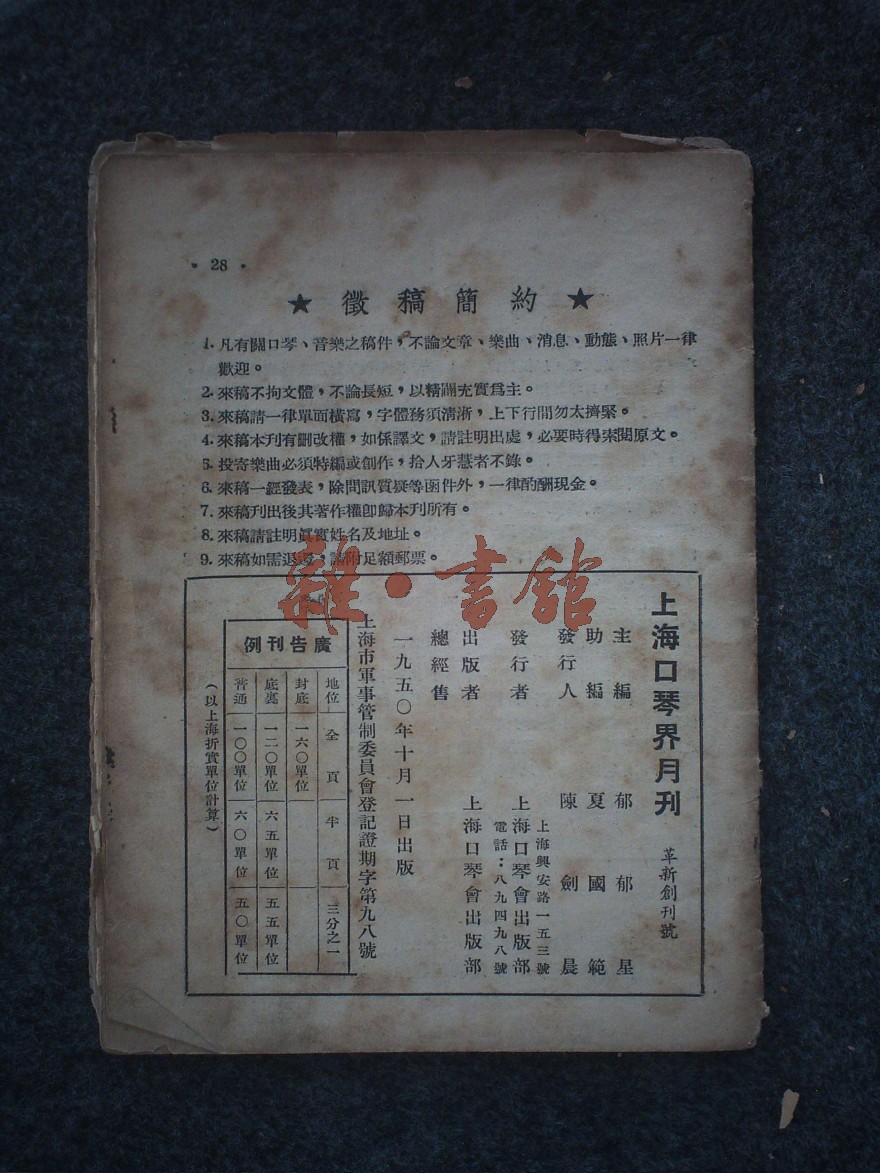 · 28 ·
★ 徵稿簡約 ★
1. 凡有關口琴、音樂之稿件，不論文章、樂曲、消息、動態、照片一律
歡迎。
2. 來稿不拘文體，不論長短，以精闢充實爲主。
3. 來稿請一律單面橫寫，字體務須清淅，上下行間勿太擠緊。
4. 來稿本刊有刪改權，如係譯文，請註明出處，必要時得索閱原文。
5. 投寄樂曲必須特編或創作，拾人牙慧者不錄。
6. 來稿一經發表，除問訊質疑等函件外，一律酌酬現金。
7. 來稿刊出後其著作權卽歸本刊所有。
8. 來稿請註明眞實姓名及地址。
9. 來稿如需退還，請附足額郵票。
雜·書館
上海口琴界月刊 革新創刊號
主編 郁郁星
助編 夏國範
發行人 陳劍晨
上海興安路一五三號
發行者 上海口琴會出版部
電話：八九四九八號
出版者 上海口琴會出版部
總經售
一九五〇年十月一日出版
上海市軍事管制委員會登記證期字第九八號
廣告刊例
地位 全頁 半頁 三分之一
封底 一六〇單位
底裏 一二〇單位 六五單位 五五單位
普通 一〇〇單位 六〇單位 五〇單位
（以上海折實單位計算）